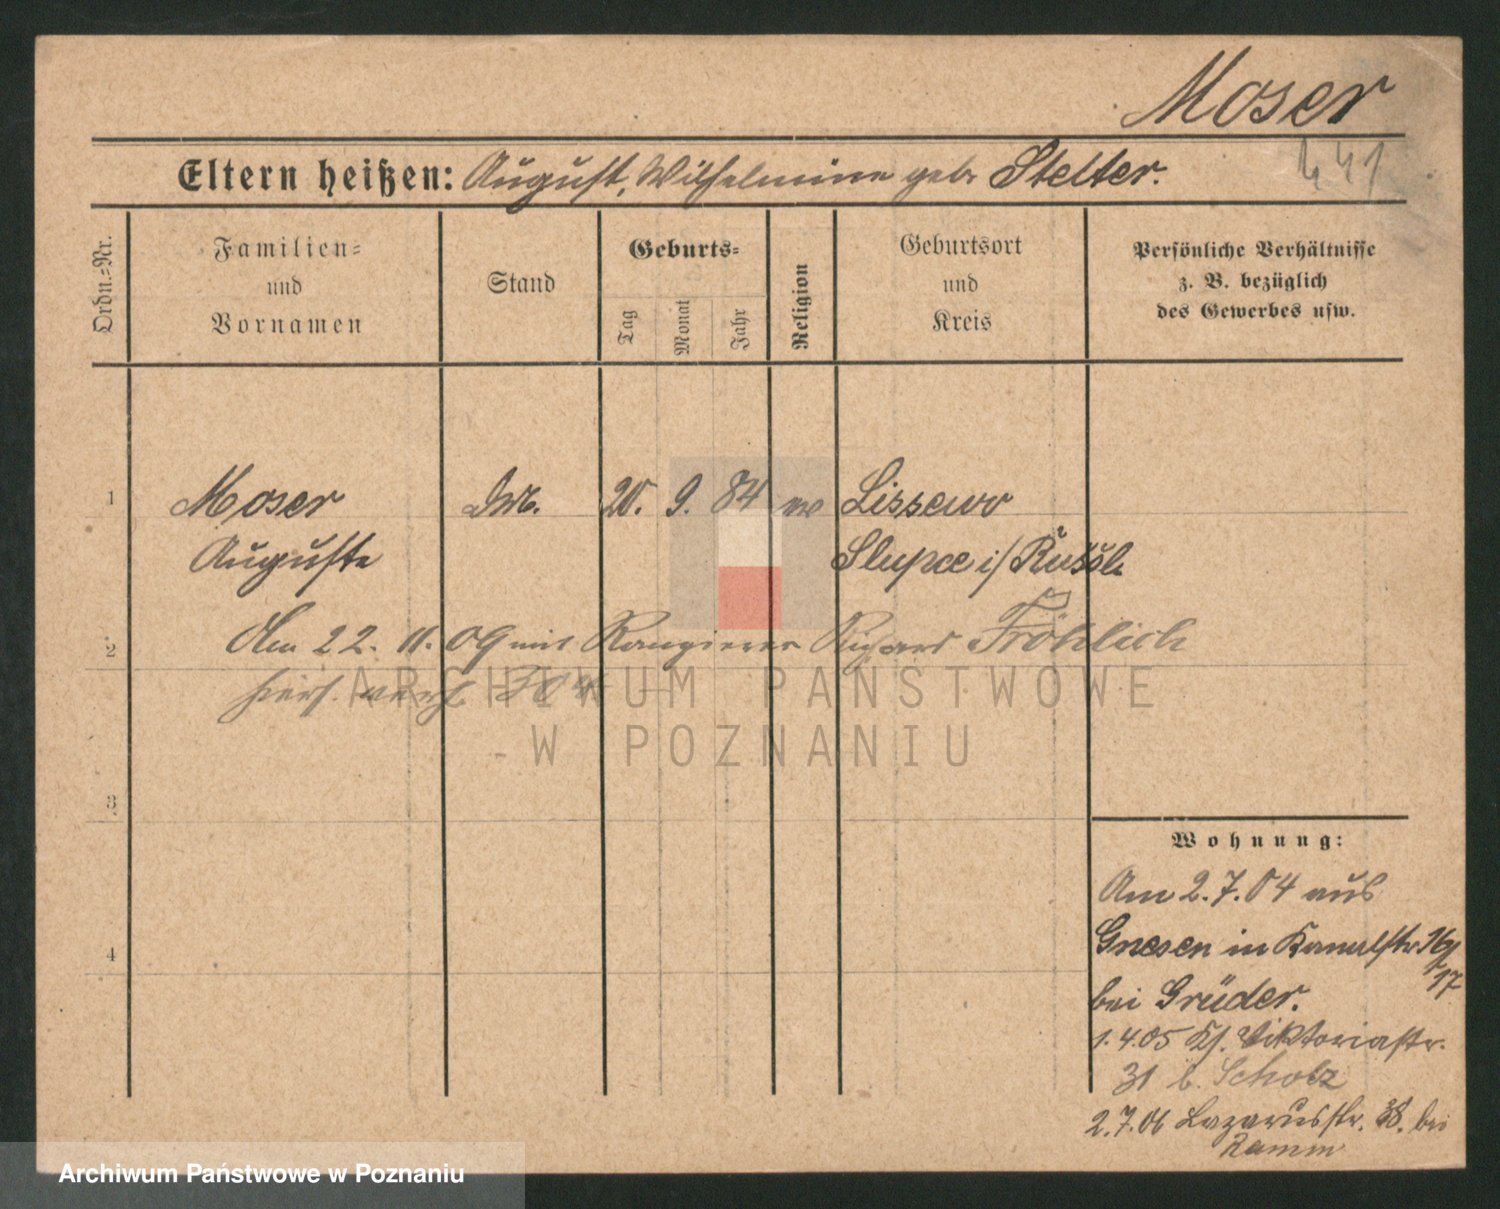 Moser
441
Eltern heißen: August, Wilhelmine geb. Stelter.
Ordn.-Nr.
Familien-
und
Vornamen
Stand
Geburts-
Tag
Monat
Jahr
Religion
Geburtsort
und
Kreis
Persönliche Verhältnisse
z. B. bezüglich
des Gewerbes usw.
1
Moser
Auguste
20. 9. 84
ev
Lissewo
Slupce i/ Rußl.
2
Am 22. 11. 09 mit Rangierer Richard Fröhlich
hies. verh.
3
4
Wohnung:
Am 2.7.04 aus
Gnesen in Kanalstr. 16/17
bei Grüder.
1.4.05 Viktoriastr.
31 b. Scholz
2.7.06 Lazarusstr. 38. bei
Ramm
ARCHIWUM PAŃSTWOWE
W POZNANIU
Archiwum Państwowe w Poznaniu